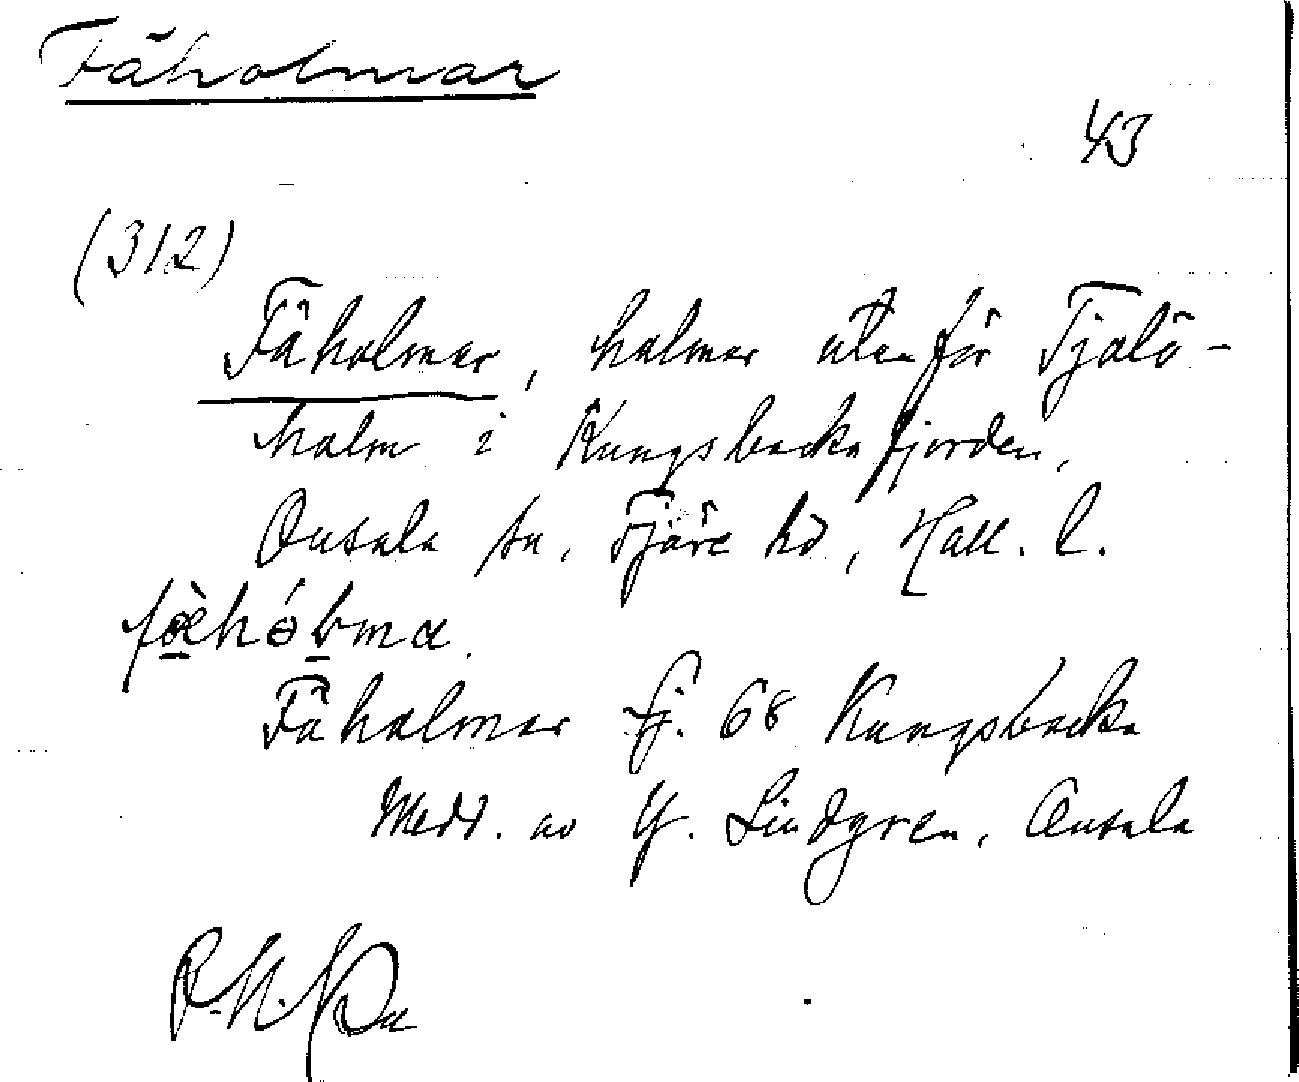 Fäholmar
43
(312)
Fäholmar, holmar utanför Tjolö-
holm i Kungsbackafjorden,
Onsala sn, Fjäre hd, Hall. l.
Fäholmar fj. 68 Kungsbacka
Medd. av Y. Lindgren, Onsala